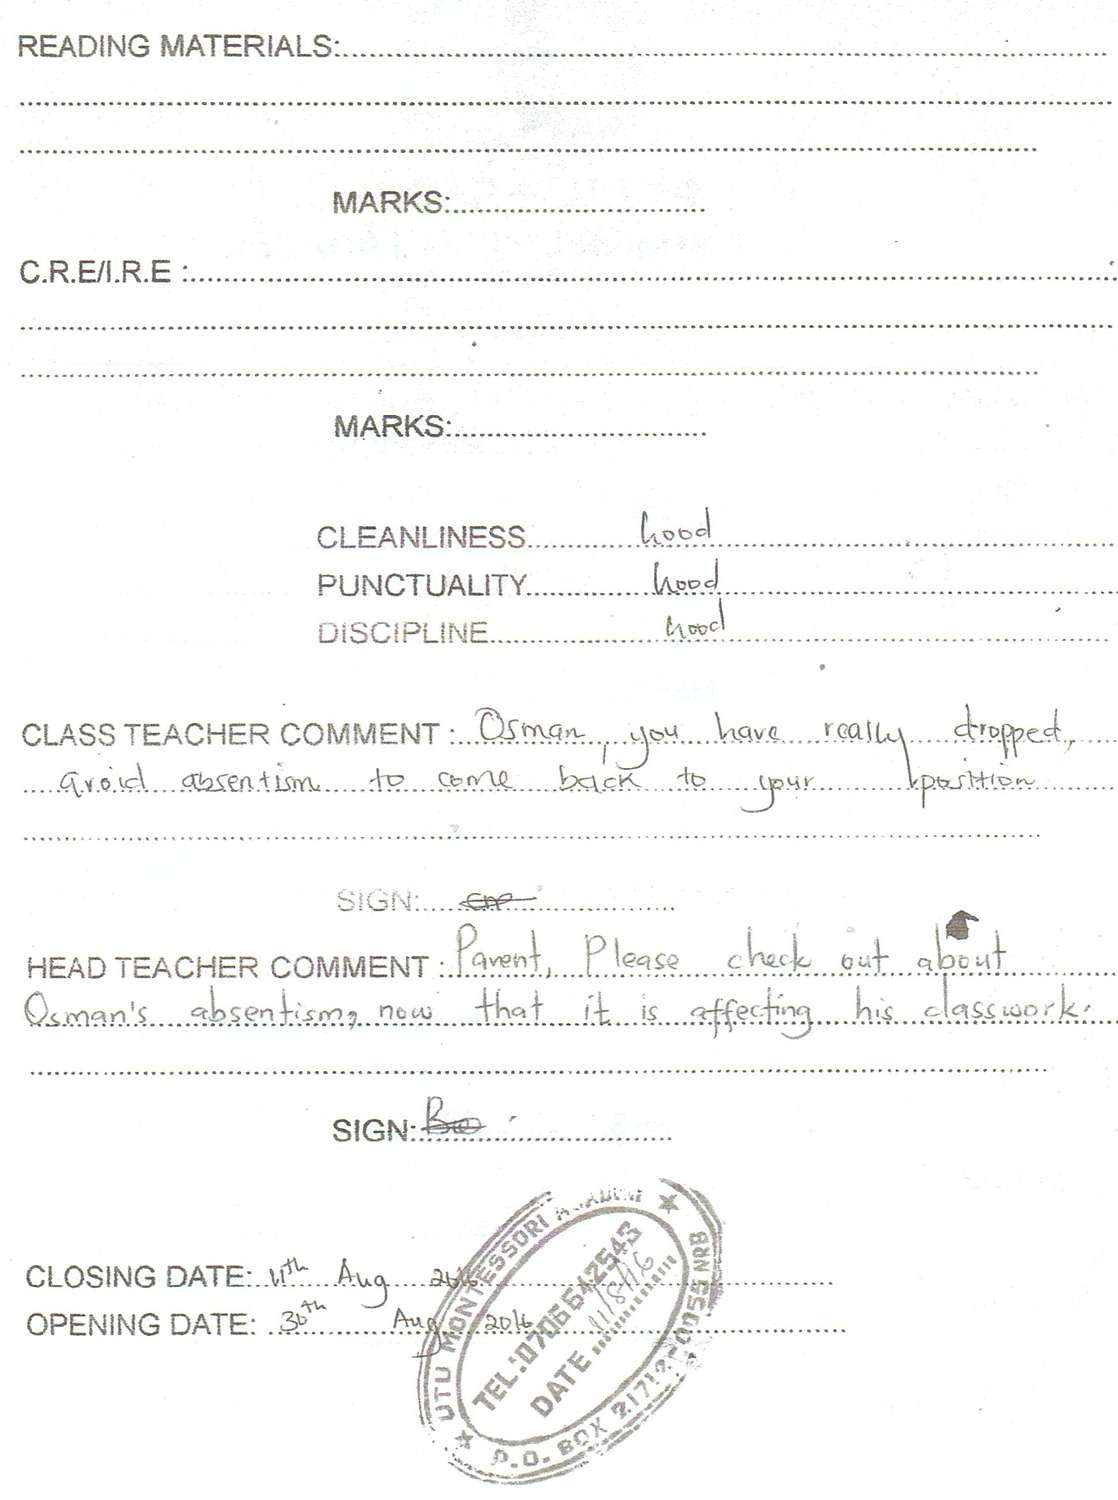 READING MATERIALS:
MARKS:
C.R.E/I.R.E :
MARKS:
CLEANLINESS Good
PUNCTUALITY Good
DISCIPLINE Good
CLASS TEACHER COMMENT : Osman, you have really dropped,
avoid absentism to come back to your position
SIGN:
HEAD TEACHER COMMENT : Parent, Please check out about
Osman's absentism, now that it is affecting his classwork.
SIGN:
CLOSING DATE: 11th Aug 2016
OPENING DATE: 30th Aug 2016
UTU MONTESSORI
TEL:0706642545
DATE 11/8/16
P.O. BOX 21712-00 NRB